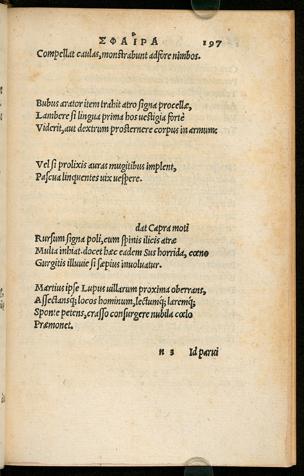 ΣΦΑΙΡΑ 197
Compellat caulas, monstrabunt adfore nimbos.
Bubus arator item trahit atro signa procellæ,
Lambere si lingua prima hos uestigia fortè
Viderit, aut dextrum prosternere corpus in armum:
Vel si prolixis auras mugitibus implent,
Pascua linquentes uix uespere.
dat Capra moti
Rursum signa poli, cum spinis ilicis atræ
Multa inhiat. docet hæc eadem Sus horrida, cœno
Gurgitis illuuie si sæpius inuoluatur.
Martius ipse Lupus uillarum proxima oberrans,
Assectansq; locos hominum, lectumq; laremq;
Sponte petens, crasso consurgere nubila cœlo
Præmonet.
n 3 Id parui